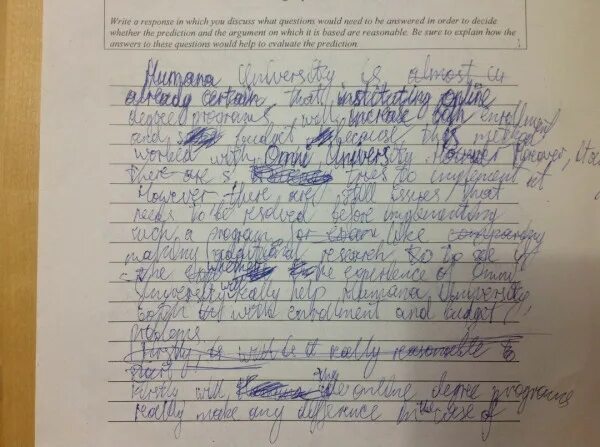 Write a response in which you discuss what questions would need to be answered in order to decide
whether the prediction and the argument on which it is based are reasonable. Be sure to explain how the
answers to these questions would help to evaluate the prediction.
Humana University is almost
already certain that instituting online
degree programs will increase both enrollment
and budget because this method
worked with Omni University. However
There are tries to implement it
However there are still issues that
needs to be resolved before implementing
such a program like
making additional research so to see if
the experience of Omni
University really help Humana University
with enrollment and budget
problems.
Firstly is it really reasonable to
start
Firstly will the online degree programs
really make any difference in the case of